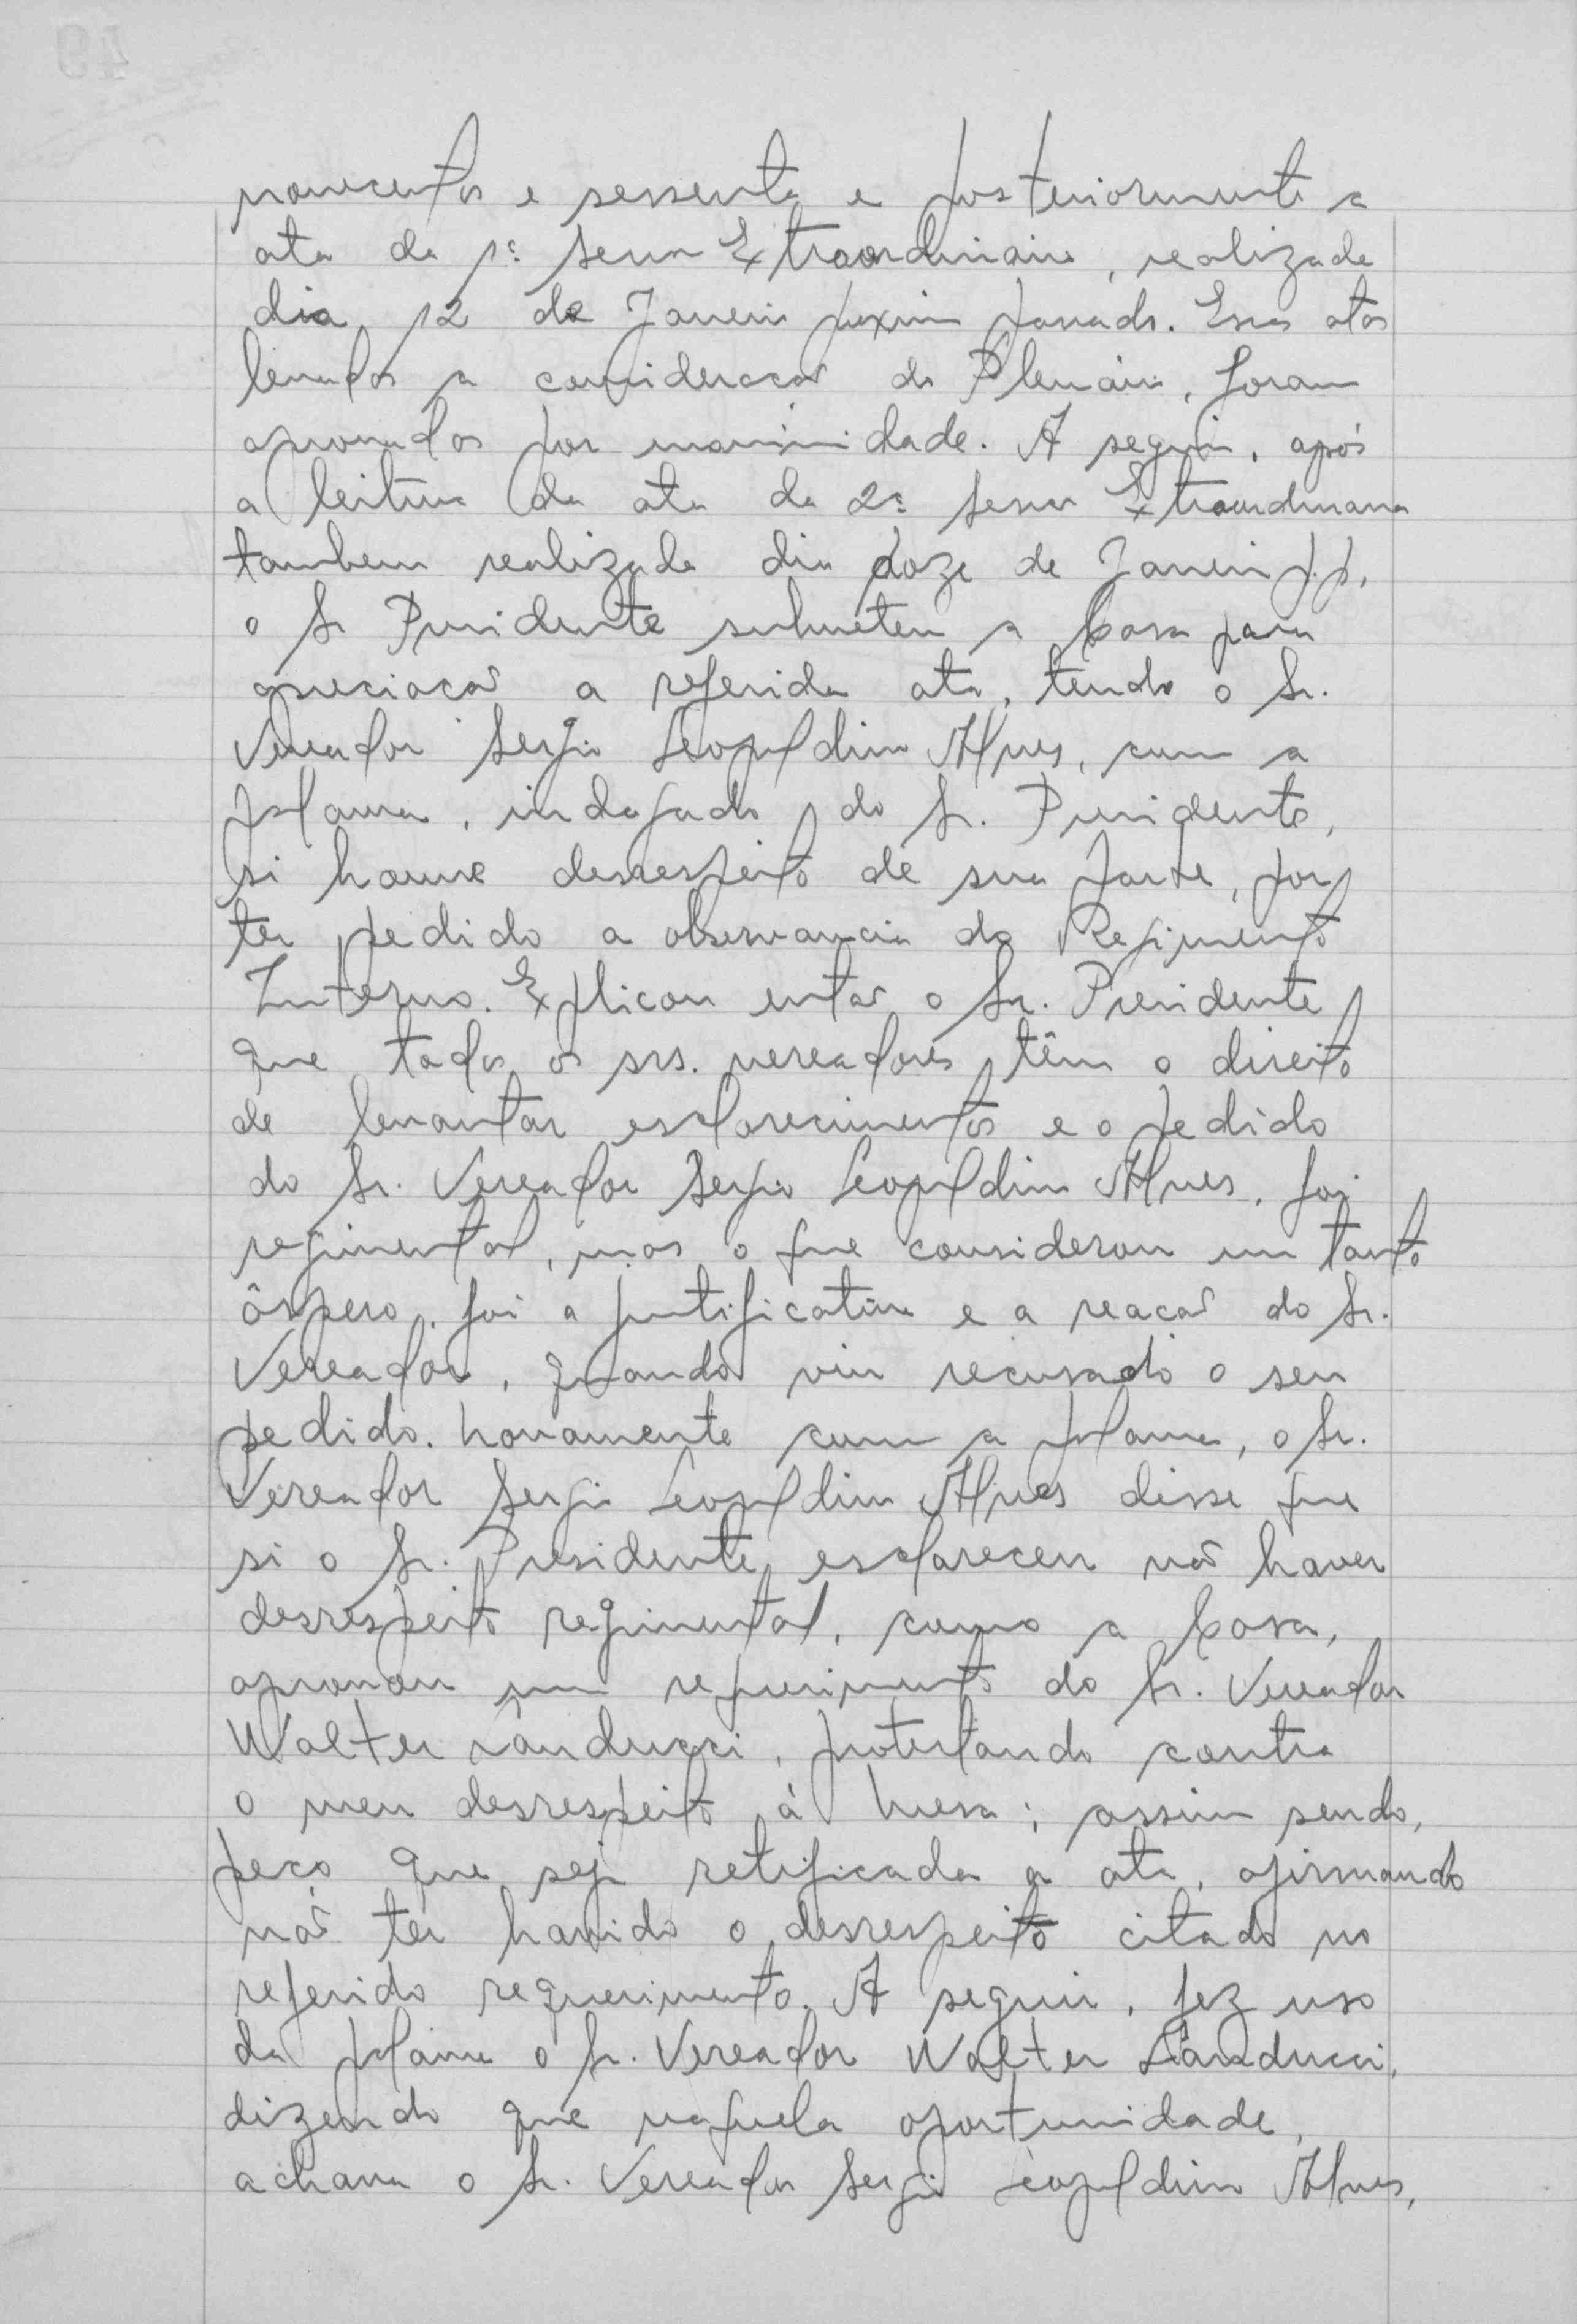 novecentos e sessenta e posteriormente a
ata da 1ª Sessão Extraordinária, realizada
dia 12 de Janeiro proximo passado. Essas atas
levadas a consideração do Plenário, foram
aprovadas por unanimidade. A seguir, após
a leitura da ata da 2ª Sessão Extraordinaria
tambem realizada dia doze de Janeiro p.p.
o Sr Presidente submeteu a Casa para
apreciação a referida ata, tendo o Sr.
Vereador Sergio Leopoldino Alves, com a
palavra, indagado do Sr. Presidente,
si houve desrespeito de sua parte, por
ter pedido a observancia do Regimento
Interno. Explicou então o Sr. Presidente
que todos os srs. vereadores têm o direito
de levantar esclarecimentos e o pedido
do Sr. Vereador Sergio Leopoldino Alves, foi
regimental, mas o que considerou um tanto
áspero, foi a justificativa e a reação do Sr.
Vereador, quando viu recusado o seu
pedido. Novamente com a palavra, o Sr.
Vereador Sergio Leopoldino Alves disse que
si o Sr. Presidente esclareceu não haver
desrespeito regimental, como a Casa,
aprovou um requerimento do Sr. Vereador
Walter Sânducci, protestando contra
o meu desrespeito á Mesa; assim sendo,
peço que seja retificada a ata, afirmando
não ter havido o desrespeito citado no
referido requerimento. A seguir, fez uso
da palavra o Sr. Vereador Walter Sânducci,
dizendo que naquela oportunidade,
achava o Sr. Vereador Sergio Leopoldino Alves,